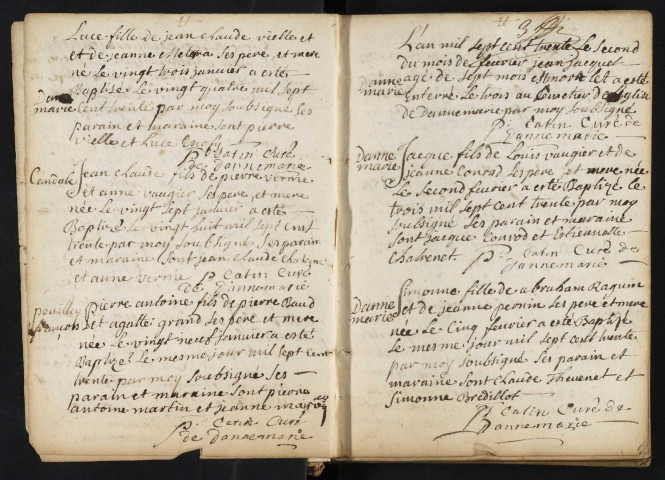 Luce fille de jean claude vielle et
et de jeanne ses pere et mere
née le vingt trois janvier a esté
Danne marie
Baptizé le vingt quatre mil sept
cent trente par moy soubsigné ses
parain et maraine sont pierre
vielle et Luce
P. Catin Curé
de Dannemarie
Candale
Jean claude fils de pierre vernie
et anne vaugier ses pere et mere
née le vingt sept janvier a esté
Baptizé le vingt huit mil sept cent
trente par moy soubsigné ses parain
et maraine sont jean claude
et anne vernie P. Catin Curé
de Dannemarie
pouilley francois
Pierre antoine fils de pierre Baud
et agatte grand ses pere et mere
née le vingt neuf janvier a esté
Baptizé le mesme jour mil sept cent
trente par moy soubsigné ses
parain et maraine sont pierre
antoine martin et jeanne
P. Catin Curé
de Dannemarie
L'an mil sept cent trente le second
du mois de feuvrier jean jacquet
Danne marie
agé de sept mois est mort et a esté
interré le trois au cimetier de l'eglise
de dannemarie par moy soubsigné
P. Catin Curé de
Dannemarie
Danne marie
Jacque fils de Louis vaugier et de
jeanne Conrod ses pere et mere née
le second feuvrier a esté Baptizé le
trois mil sept cent trente par moy
soubsigné ses parain et maraine
sont jacque Conrod et Estiennette
P. Catin Curé de
Dannemarie
Danne marie
Simonne fille de abraham Raquin
et de jeanne peonin ses pere et mere
née le Cinq feuvrier a esté Baptizé
le mesme jour mil sept cent trente
par moy soubsigné ses parain et
maraine sont Claude Thevenet et
Simonne Bredillot
P. Catin Curé de
Dannemarie